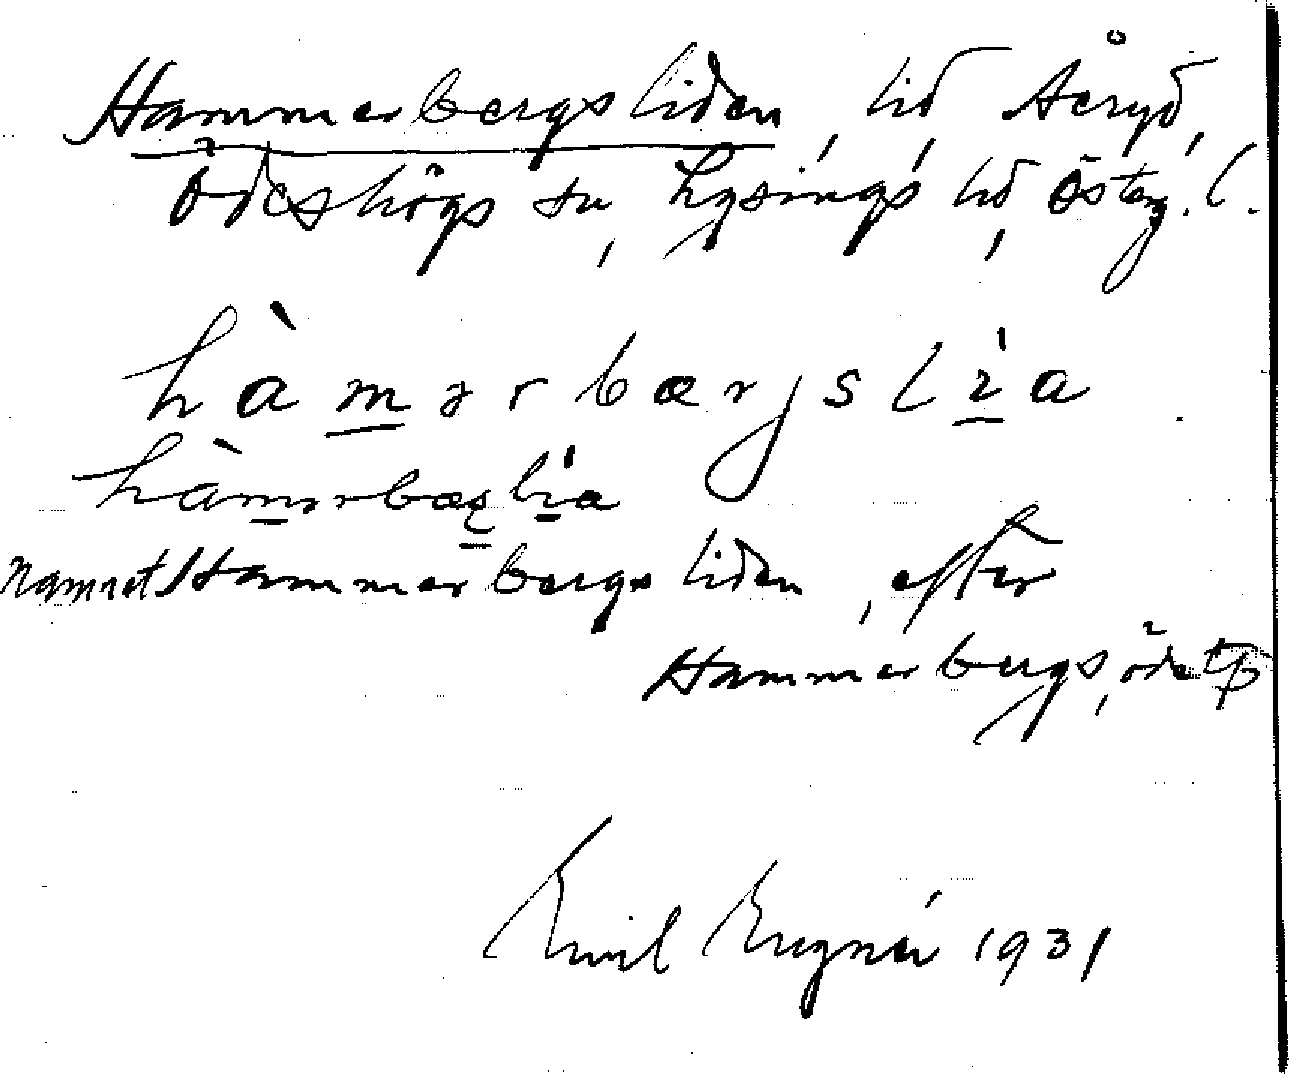 Hammerbergsliden, vid Åeryd,
Ödeshögs sn, Lysings hd, Österg. l.
hàmərbærjslìa
hàmərbæslìa
namnet Hammerbergsliden, efter
Hammerbergs, öde tp
Emil 1931